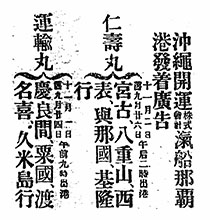 沖繩開運株式會社汽船那覇
港發着廣告
仁壽丸
十一月二日
舊九月廿六日
午后二時出港
宮古、八重山、西
表、與那國、基隆
行
運輸丸
舊九月廿四日
午前九時出港
慶良間、粟國、渡
名喜、久米島行